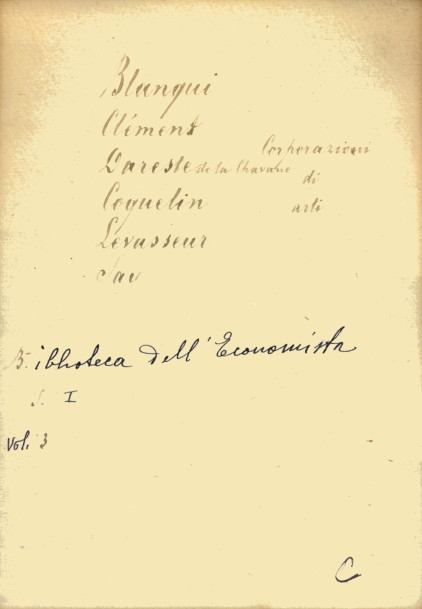 Blanqui
Clément
Dareste de la Chavane
Coquelin
Levasseur
Say
Corporazioni
di
arti
Biblioteca dell' Economista
S. I
Vol. 3
C